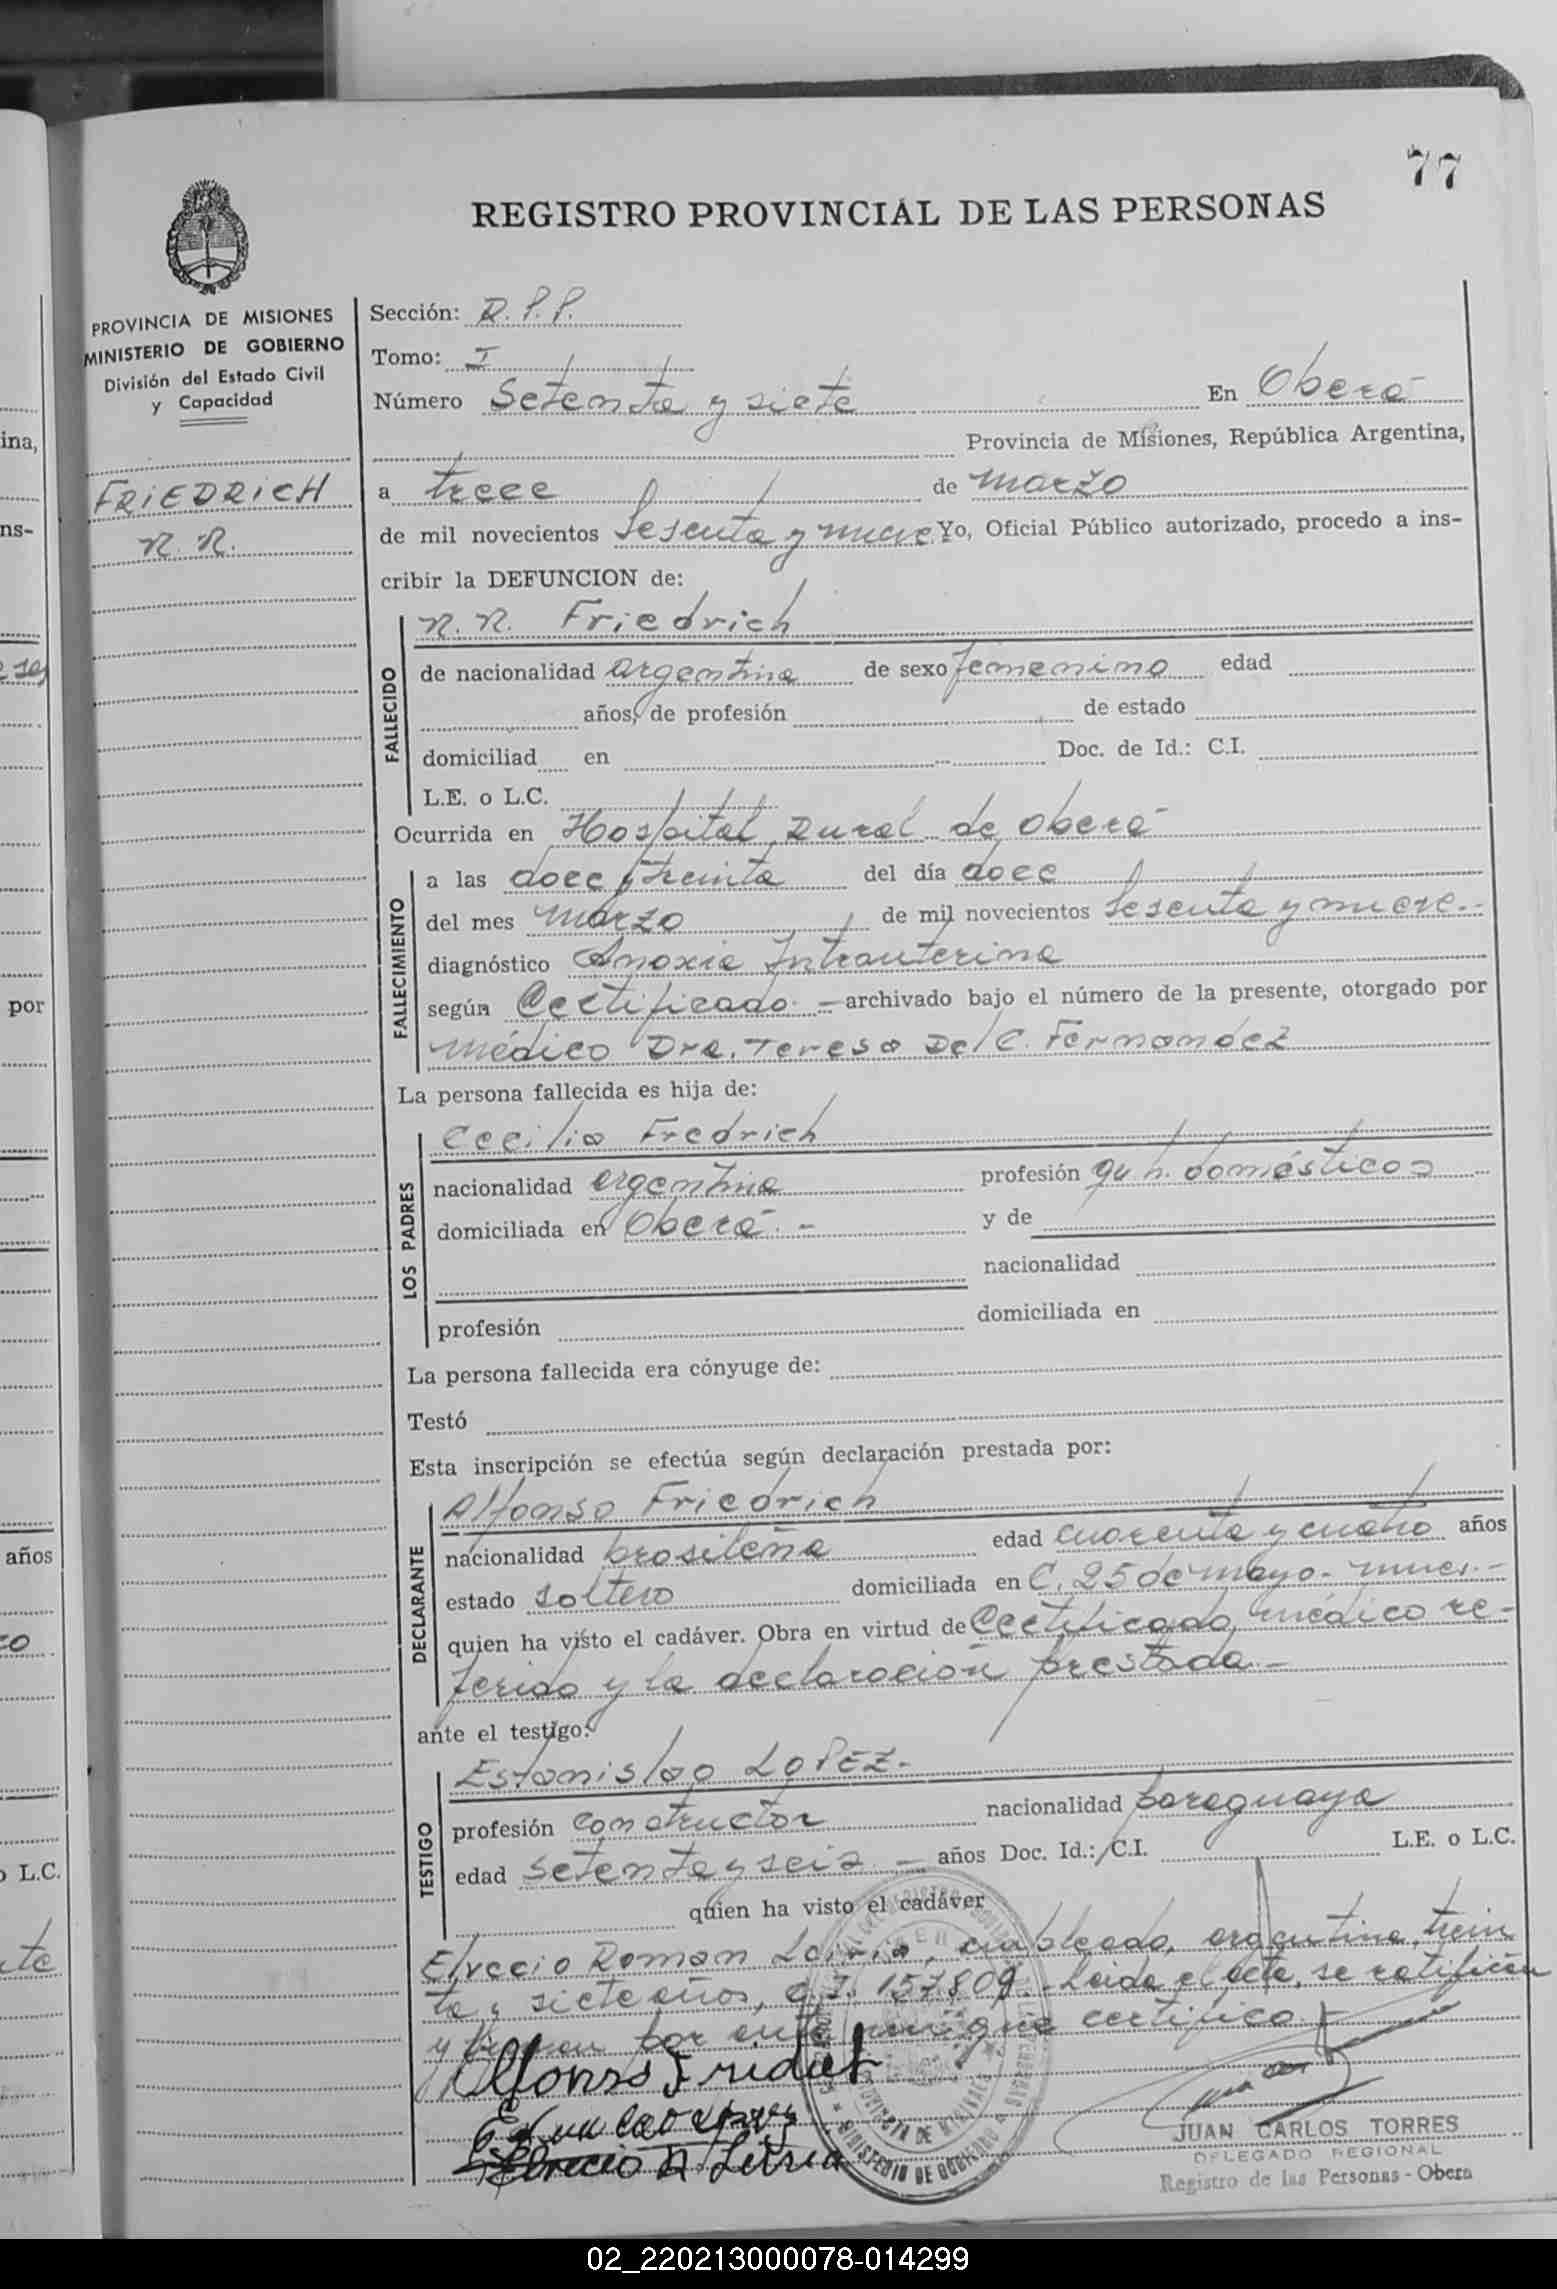 77
REGISTRO PROVINCIAL DE LAS PERSONAS
PROVINCIA DE MISIONES
MINISTERIO DE GOBIERNO
División del Estado Civil
y Capacidad
FRIEDRICH
N. N.
Sección: D. P. P.
Tomo: I
Número Setenta y siete En Oberá
Provincia de Misiones, República Argentina,
a trece de marzo
de mil novecientos Sesenta y nueve Yo, Oficial Público autorizado, procedo a ins-
cribir la DEFUNCION de:
N. N. Friedrich
FALLECIDO
de nacionalidad argentina de sexo femenino edad
años, de profesión de estado
domiciliad en Doc. de Id.: C.I.
L.E. o L.C.
Ocurrida en Hospital Rural de Oberá
FALLECIMIENTO
a las doce y treinta del día doce
del mes Marzo de mil novecientos Sesenta y nueve.-
diagnóstico Anoxia Intrauterina
según Certificado - archivado bajo el número de la presente, otorgado por
Médico Dra. Teresa Del C. Fernandez
La persona fallecida es hija de:
LOS PADRES
Cecilia Fredrich
nacionalidad argentina profesión qu h. domésticos
domiciliada en Oberá.- y de
nacionalidad
profesión domiciliada en
La persona fallecida era cónyuge de:
Testó
Esta inscripción se efectúa según declaración prestada por:
DECLARANTE
Alfonso Friedrich
nacionalidad brasileña edad cuarenta y cuatro años
estado soltero domiciliada en C. 25 de mayo - mnes.-
quien ha visto el cadáver. Obra en virtud de Certificado médico re-
ferido y la declaración prestada.-
ante el testigo:
TESTIGO
Estanislao LOPEZ.-
profesión constructor nacionalidad paraguaya
edad setenta y seis - años Doc. Id.: C.I. L.E. o L.C.
quien ha visto el cadáver
Elvecio Roman empleado, argentino, trein
ta y siete años, C.I. 157.809.- Leida el acta, se ratifican
y firman por ante mí que certifico
JUAN CARLOS TORRES
DELEGADO REGIONAL
Registro de las Personas - Obera
MINISTERIO DE GOBIERNO
PROVINCIA DE MISIONES
ina,
ns-
por
años
o L.C.
02_220213000078-014299